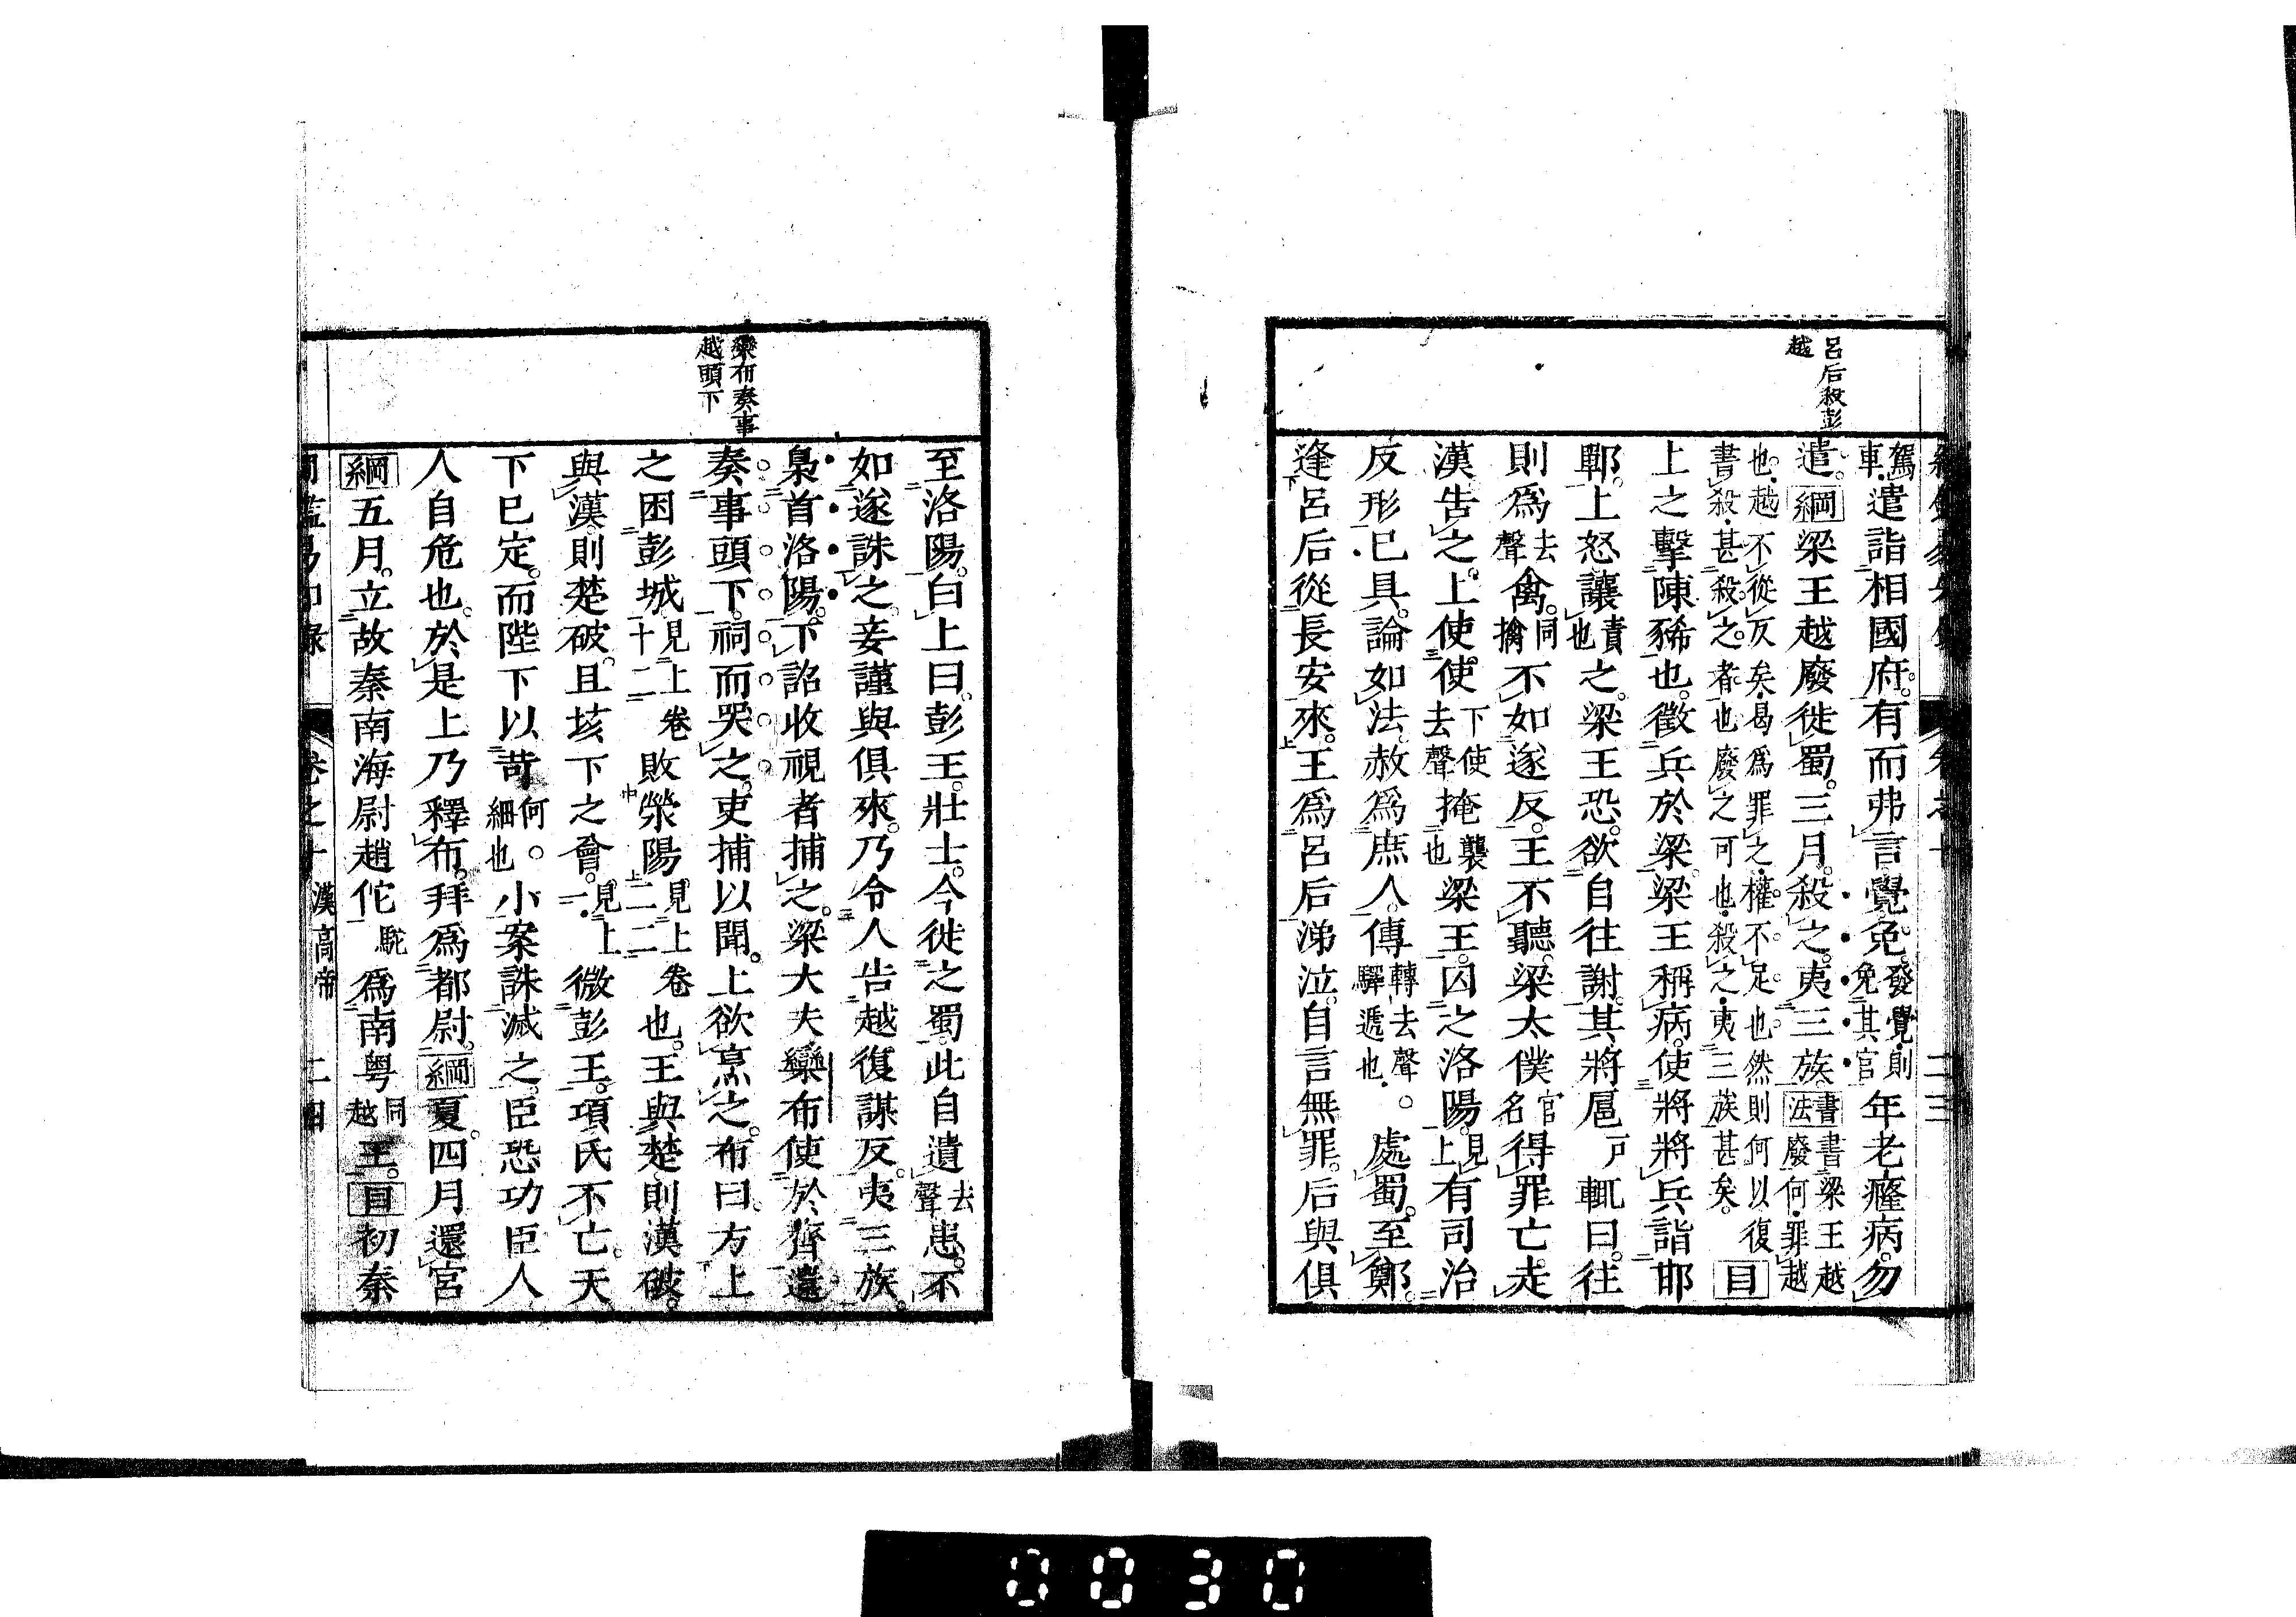 呂后殺彭
越
駕車遣詣相國府。有而弗言覺免。發覺則免其官年老癃病。勿
遣。綱梁王越廢徙蜀。三月。殺之。夷三族書法書梁王越廢何罪越
也。越不從反矣曷爲罪之權不足也然則何以復
書殺甚殺之者也廢之可也殺之夷三族甚矣。目
上之擊陳豨也。徵兵於梁。梁王稱病。使將將兵詣邯
鄲。上怒讓責也之。梁王恐。欲自往謝。其將扈戶輒曰。往
則爲去聲禽。同擒不如遂反。王不聽。梁太僕官名得罪亡走
漢告之。上使使下使去聲掩襲也梁王。囚之洛陽。見上有司治
反形已具。論如法。赦爲庶人。傳轉去聲驛遞也。處蜀。至鄭。
逢呂后從長安來。王爲呂后涕泣。自言無罪。后與俱
欒布奏事
越頭下
至洛陽。白上曰。彭王壯士。今徙之蜀。此自遺去聲患。不
如遂誅之。妾謹與俱來。乃令人告越復謀反。夷三族。
梟首洛陽。下詔收視者捕之。梁大夫欒布使於齊還
奏事頭下。祠而哭之。吏捕以聞。上欲烹之。布曰。方上
之困彭城見上卷十二敗滎陽。見上卷二二也。王與楚則漢破。
與漢則楚破。且垓下之會。見上一微彭王。項氏不亡。天
下已定。而陛下以苛何細也小案誅滅之。臣恐功臣人
人自危也。於是上乃釋布。拜爲都尉。綱夏四月還宮
綱五月。立故秦南海尉趙佗駝爲南粵同越王。目初秦
卷之十 漢高帝 二四